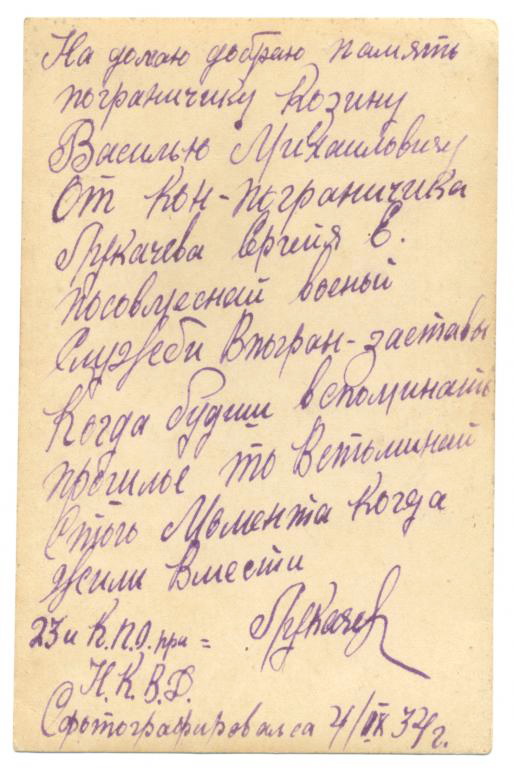 На долгаю добраю память
пограничику Козину
Василью Михайловичу
От кон-пограничика
Лукачева Сергейя Е.
посовмеснай военый
Службы Впогран-заставы
Когда будиш вспоминать
прошлое то Вспоминай
Стого Момента Когда
Жили Вмести
23и К.П.О. при = Лукачев
Н.К.В.Д.
Сфотографировался 4/IX 34г.